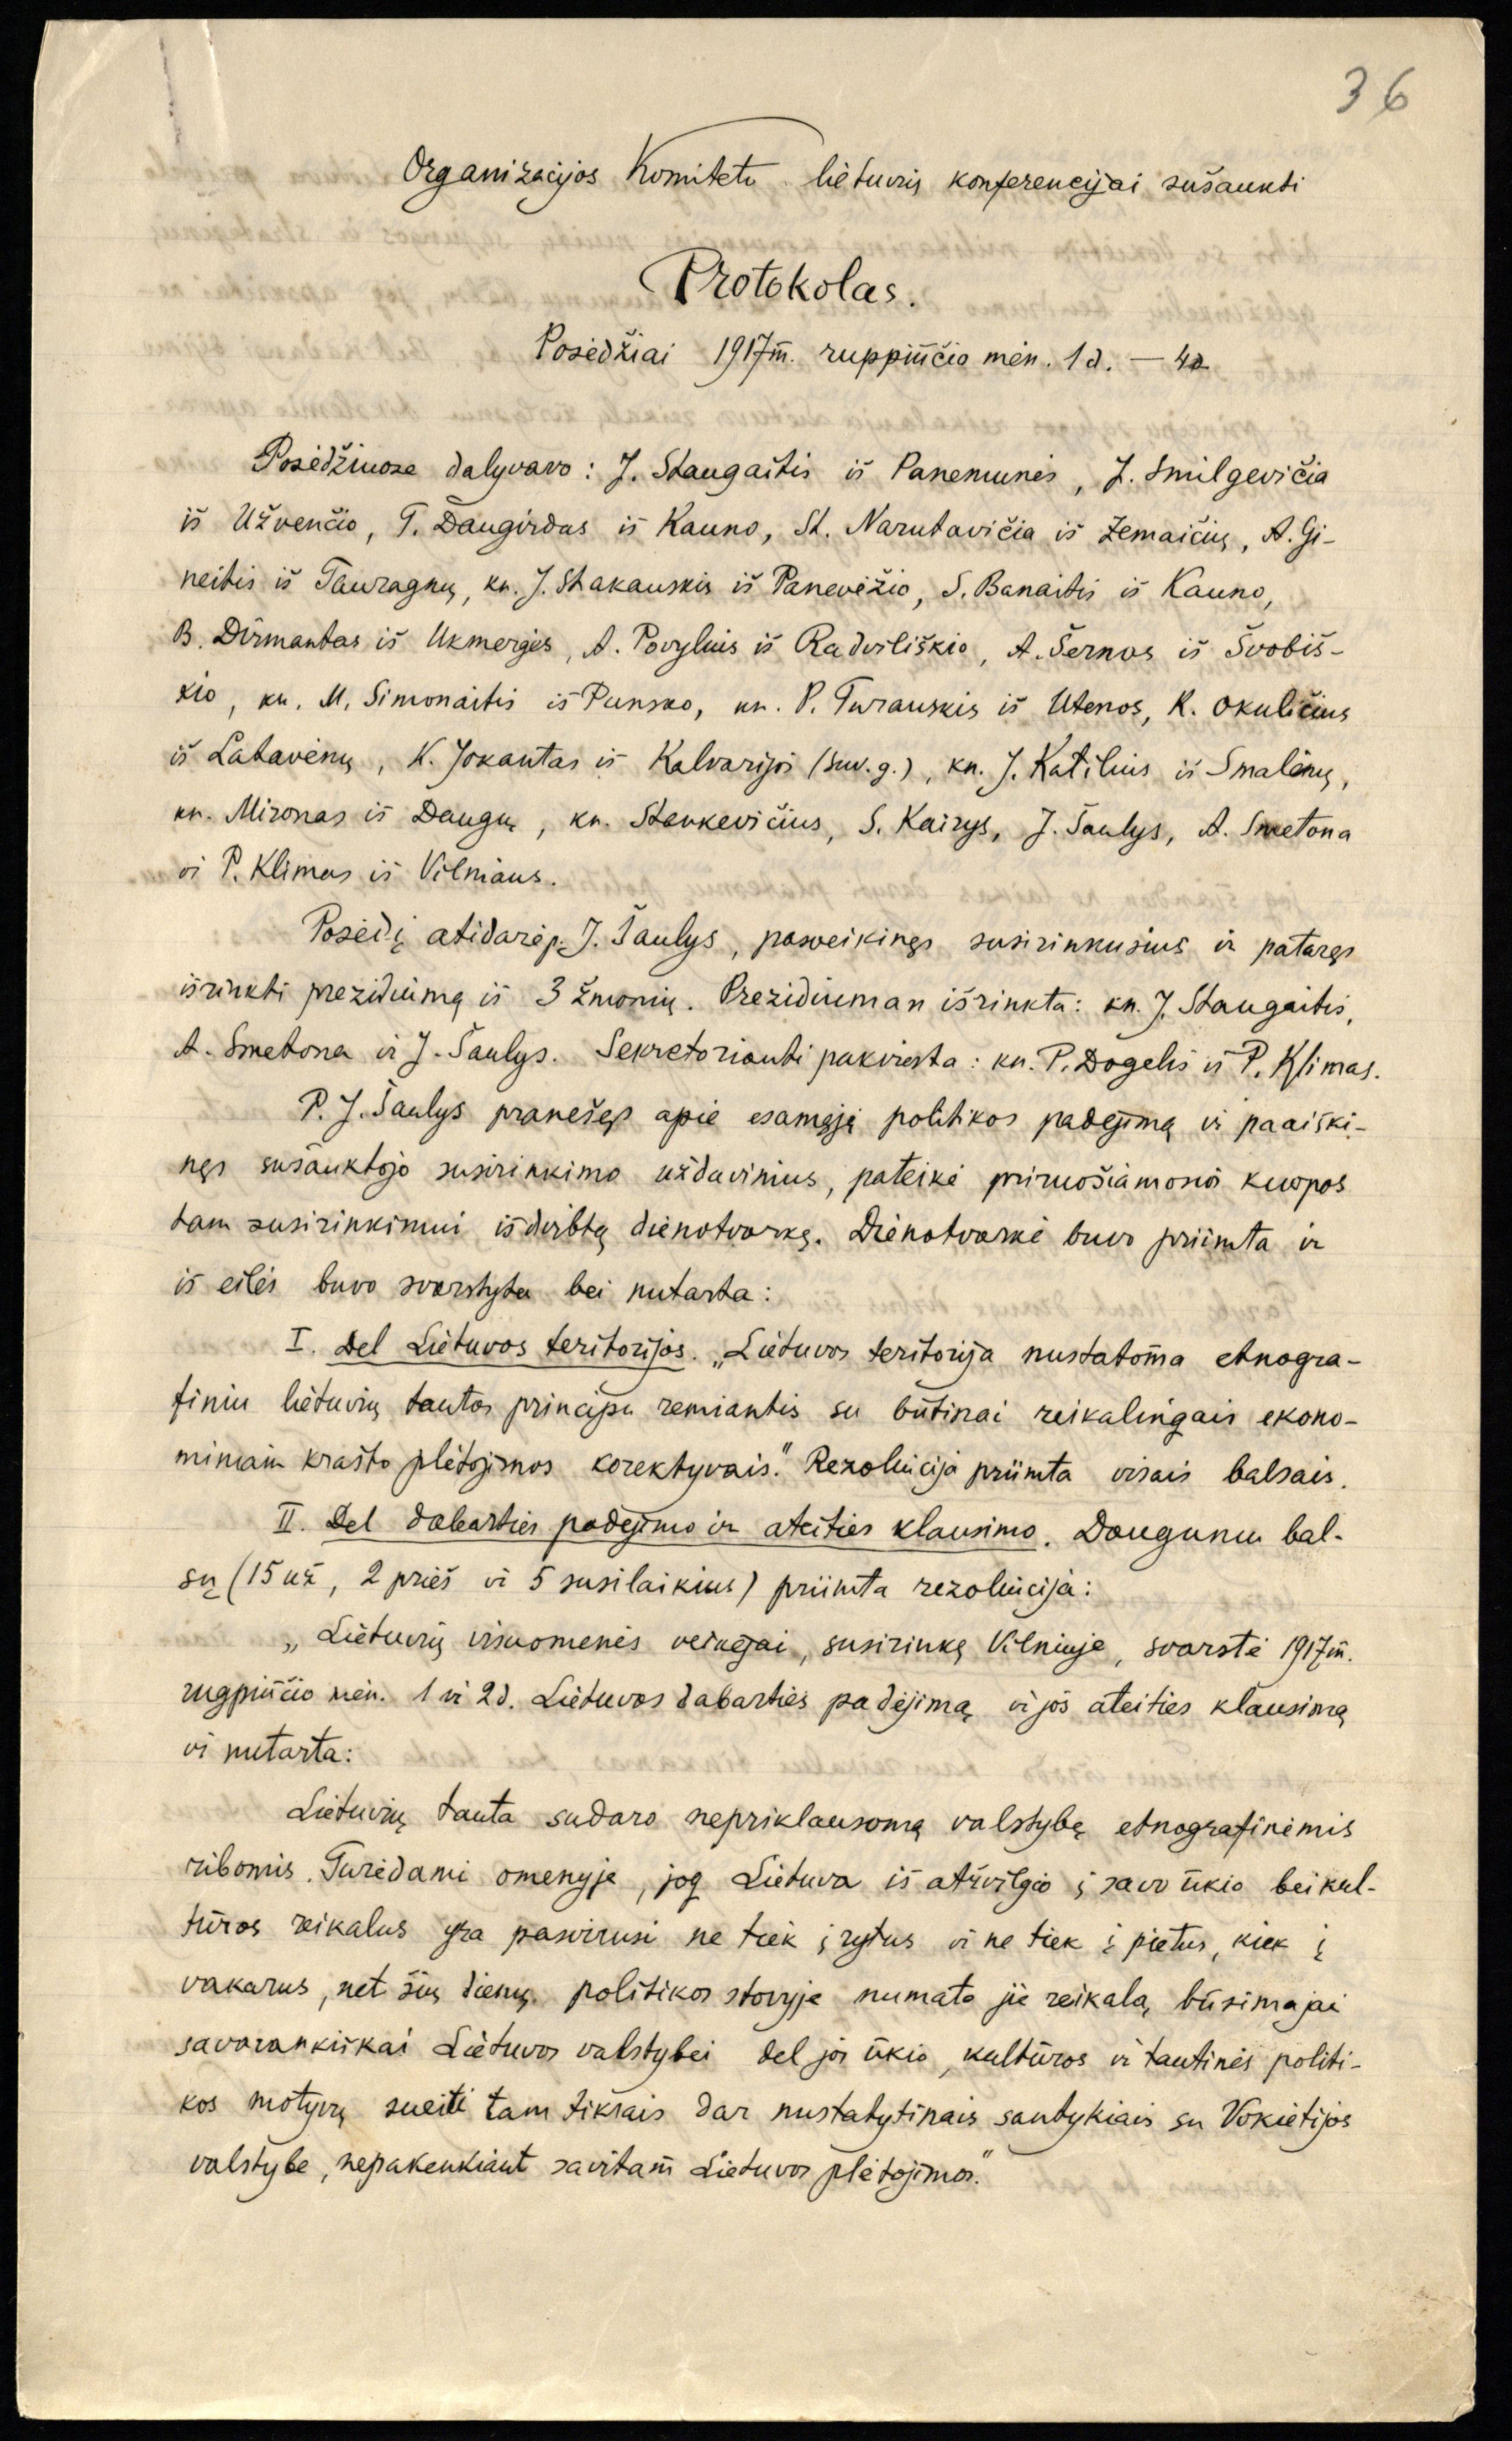 36
Organizacijos Komiteto lietuvių konferencijai sušaukti
Protokolas.
Posėdžiai 1917 m. rugpiučio mėn. 1 d. — 4 d.
Posėdžiuose dalyvavo: J. Staugaitis iš Panemunės, J. Smilgevičia
iš Užvenčio, T. Daugirdas iš Kauno, St. Narutavičia iš Žemaičių, A. Gi-
neitis iš Tauragnų, kn. J. Stakauskis iš Panevėžio, S. Banaitis iš Kauno,
B. Dirmantas iš Ukmergės, A. Povylius iš Radviliškio, A. Šernas iš Švobiš-
kio, kn. M. Simonaitis iš Punsko, kn. P. Turauskis iš Utenos, R. Okuličius
iš Latavėnų, K. Jokantas iš Kalvarijos (Suv. g.), kn. J. Katilius iš Smalėnų,
kn. Mironas iš Daugų, kn. Stankevičius, S. Kairys, J. Šaulys, A. Smetona
ir P. Klimas iš Vilniaus.
Posėdį atidarė p. J. Šaulys, pasveikinęs susirinkusius ir pataręs
išrinkti prezidiumą iš 3 žmonių. Prezidiuman išrinkta: kn. J. Staugaitis,
A. Smetona ir J. Šaulys. Sekretoriauti pakviesta: kn. P. Dogelis ir P. Klimas.
P. J. Šaulys pranešęs apie esamąją politikos padėjimą ir paaiški-
nęs sušauktojo susirinkimo uždavinius, pateikė priruošiamosios kuopos
tam susirinkimui išdirbtą dienotvarkę. Dienotvarkė buvo priimta ir
iš eilės buvo svarstyta bei nutarta:
I. Del Lietuvos teritorijos. „Lietuvos teritorija nustatoma etnogra-
finiu lietuvių tautos principu remiantis su būtinai reikalingais ekono-
miniam krašto plėtojimos korektyvais." Rezoliucija priimta visais balsais.
II. Del dabarties padėjimo ir ateities klausimo. Daugumu bal-
sų (15 už, 2 prieš ir 5 susilaikius) priimta rezoliucija:
„Lietuvių visuomenės veikėjai, susirinkę Vilniuje, svarstė 1917 m.
rugpiučio mėn. 1 ir 2 d. Lietuvos dabarties padėjimą ir jos ateities klausimą
ir nutarta:
Lietuvių tauta sudaro nepriklausomą valstybę etnografinėmis
ribomis. Turėdami omenyje, jog Lietuva iš atžvilgio į savo ūkio bei kul-
tūros reikalus yra pasvirusi ne tiek į rytus ir ne tiek į pietus, kiek į
vakarus, net šių dienų politikos stovyje numato jie reikalą būsimajai
savarankiškai Lietuvos valstybei del jos ūkio, kultūros ir tautinės politi-
kos motyvų sueiti tam tikrais dar nustatytinais santykiais su Vokietijos
valstybe, nepakenkiant savitam Lietuvos plėtojimos."